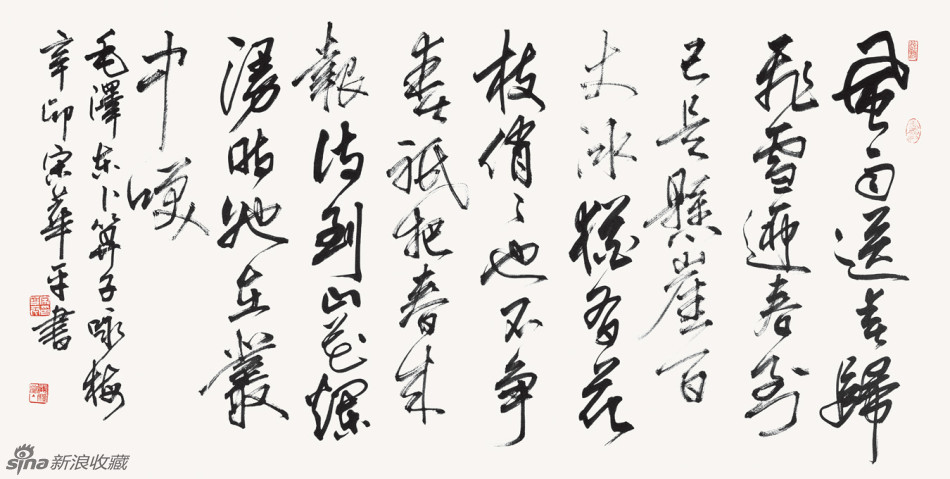 風雨送春歸
飛雪迎春到
已是懸崖百
丈冰猶有花
枝俏〻也不争
春祇把春来
報待到山花爛
漫時她在叢
中咲
毛澤东卜算子咏梅
辛卯宋華平書
sina新浪收藏